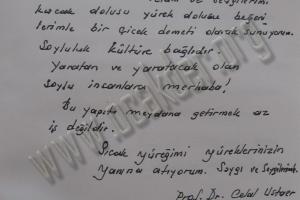 kucak dolusu yürek dolusu beğeni
lerimle bir çiçek demeti olarak sunuyorum.
Soyluluk kültüre bağlıdır.
Yaratan ve yaratacak olan
soylu insanlara merhaba!
Bu yapıtı meydana getirmek az
iş değildir.
Sıcak yüreğimi yüreklerinizin
yanına atıyorum. Saygı ve Sevgilerimle.
Prof. Dr. Celal